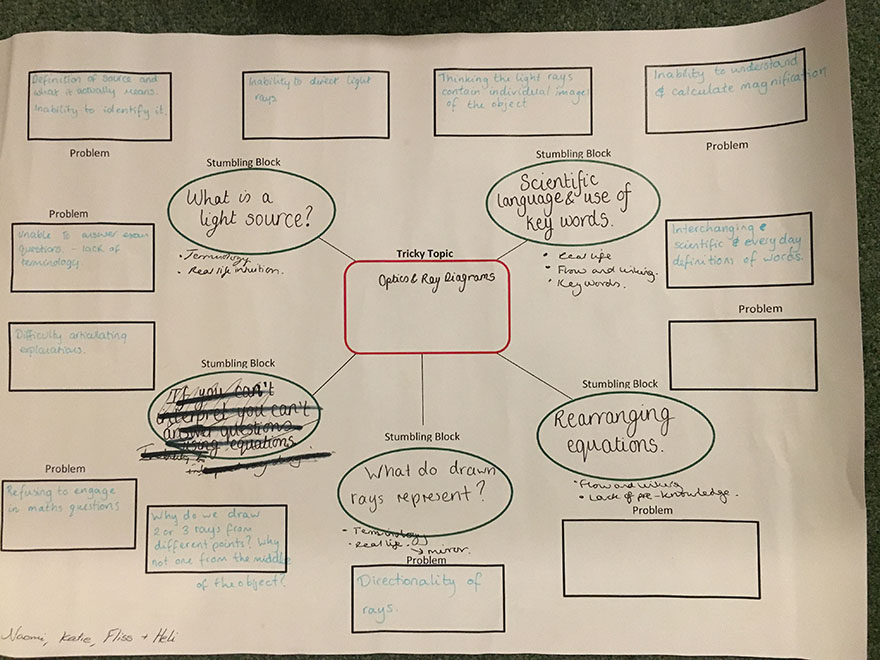 Definition of source and
what it actually means.
Inability to identify it.
Problem
Inability to direct light
rays
Thinking the light rays
contain individual images
of the object
Inability to understand
& calculate magnification
Problem
Stumbling Block
What is a
light source?
• Terminology
• Real life intuition.
Stumbling Block
Scientific
language & use of
key words.
• Real life
• Flow and linking.
• Key words.
Problem
Unable to answer exam
questions. - lack of
terminology.
Tricky Topic
Optics & Ray Diagrams
Interchanging
scientific & everyday
definitions of words.
Problem
Difficulty articulating
explanations.
Stumbling Block
If you can't
interpret you can't
answer questions
using equations
Stumbling Block
Rearranging
equations.
• Flow and linking
• Lack of pre-knowledge.
Problem
Stumbling Block
What do drawn
rays represent?
• Terminology
• Real life.
→ mirror.
Problem
Directionality of
rays.
Problem
Refusing to engage
in maths questions
Why do we draw
2 or 3 rays from
different points? Why
not one from the middle
of the object?
Naomi, Katie, Fliss + Heli